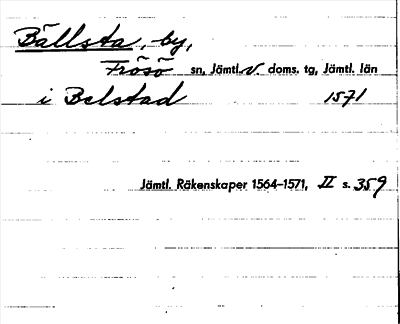 Bällsta, by,
Frösö sn, Jämtl. v. doms. tg, Jämtl. län
i Belstad 1571
Jämtl. Räkenskaper 1564–1571, II s. 359